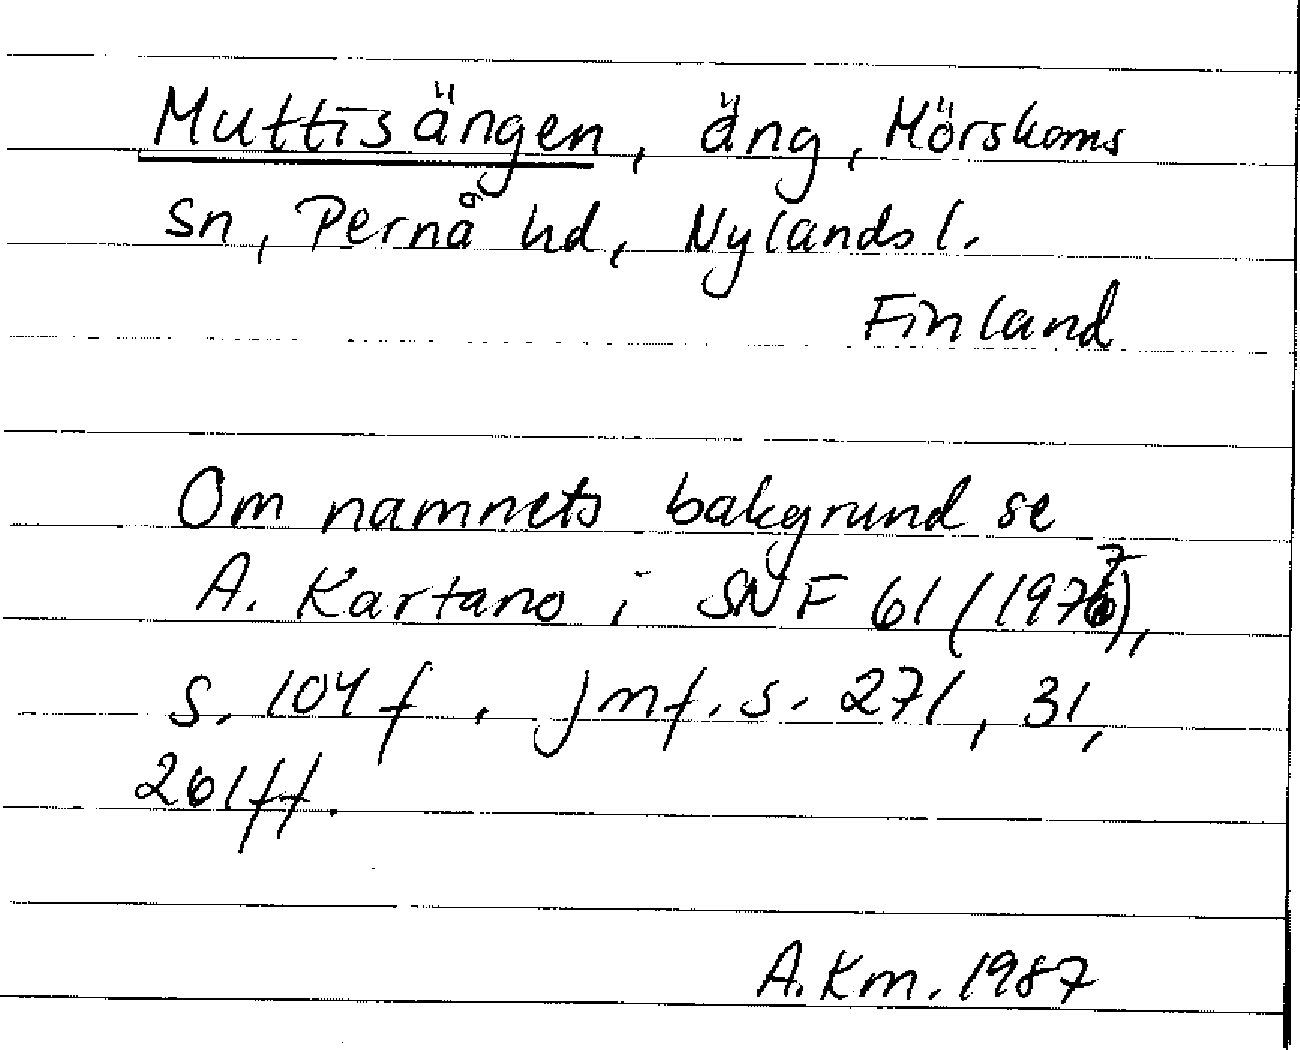 Muttisängen, äng, Mörskoms
sn, Pernå hd, Nylands l.
Finland
Om namnets bakgrund se
A. Kartano i SNF 61 (1977),
s. 104 f. Jmf. s. 271, 31,
261 ff.
A.Km. 1987